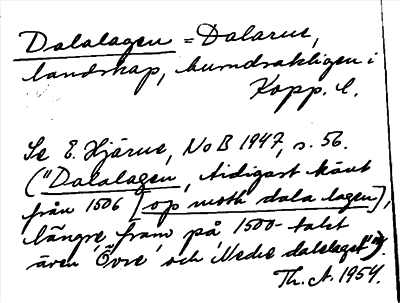 Dalalagen = Dalarne,
landskap, hurudsakligen i
Kopp. l.
Se E. Hjärne, NoB 1947, s. 56.
("Dalalagen, tidigast känt
från 1506 [op moth dala lagen],
längre fram på 1500-talet
även 'Övre' och 'Nedre dalalaget'").
Th. A. 1954.